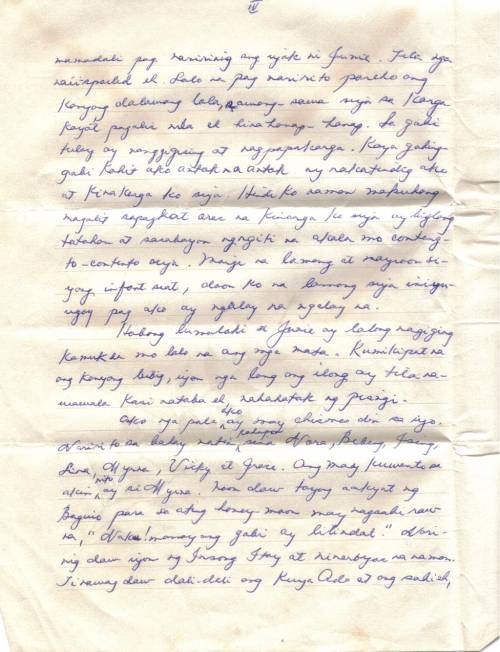 IV
mamadali pag naririnig ang iyak ni Junie. Tila nga
naiispoiled eh. Lalo na pag naririto pareho ang
kanyang dalawang lola, sawang-sawa siya sa karga
kaya't pagalis nila eh hinahanap-hanap. Sa gabi
tuloy ay nanggigising at nagpapakarga. Kaya gabi-
gabi kahit ako antok na antok ay nakatindig ako
at kinakarga ko siya. Hindi ko naman makuhang
magalit sapagkat oras na kinarga ko siya ay biglang
tatahan at sasabayan ng ngiti na akala mo conten-
to-contento siya. Maigi na lamang at mayroon si-
yang infant seat, doon ko na lamang siya iniuu-
ugoy pag ako ay ngalay na ngalay na.
Habang lumalaki si Junie ay lalong nagiging
kamukha mo lalo na ang mga mata. Kumikipot na
ang kanyang bibig, iyon nga lang ang ilong ay tila na-
wawala kasi nataba eh, nahahatak ng pisngi.
Ako nga pala ako ay may chismes din sa iyo.
Naririto sa bahay natin kahapon sina Nora, Beboy,
Lina, Myrna, Vicky at Grace. Ang may kuwento sa
akin nito ay si Myrna. Noon daw tayong aakyat ng
Baguio para sa ating honey-moon may nagsabi raw
na, "Naku! mamayang gabi ay titindal." Nari-
nig daw iyon ng Insong Itay at ninerbyos na naman.
Tinawag daw dali-dali ang Kuya Ado at ang sabi eh,